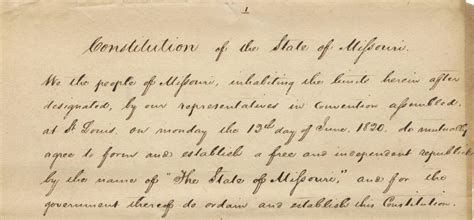 1
Constitution of the State of Missouri.
We the people of Missouri, inhabiting the limits herein after
designated, by our representatives in Convention assembled
at St Louis, on monday the 12th day of June, 1820. do mutually
agree to form and establish a free and independent republic
by the name of "The State of Missouri," and for the
government thereof do ordain and establish this Constitution.